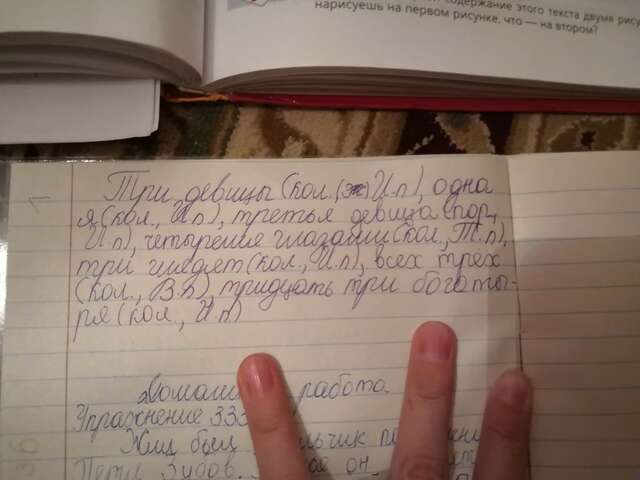 содержание этого текста двумя рису
нарисуешь на первом рисунке, что — на втором?
Три девицы (кол., И.п), одна
я (кол., И.п), третья девица (пор,
И.п), четыремя глазами (кол., Т.п),
три глядят (кол., И.п), всех трёх
(кол., В.п), тридцать три богаты-
ря (кол., И.п)
Домаш работа.
Упражнение 333
Жил был
Петя Зубов. он